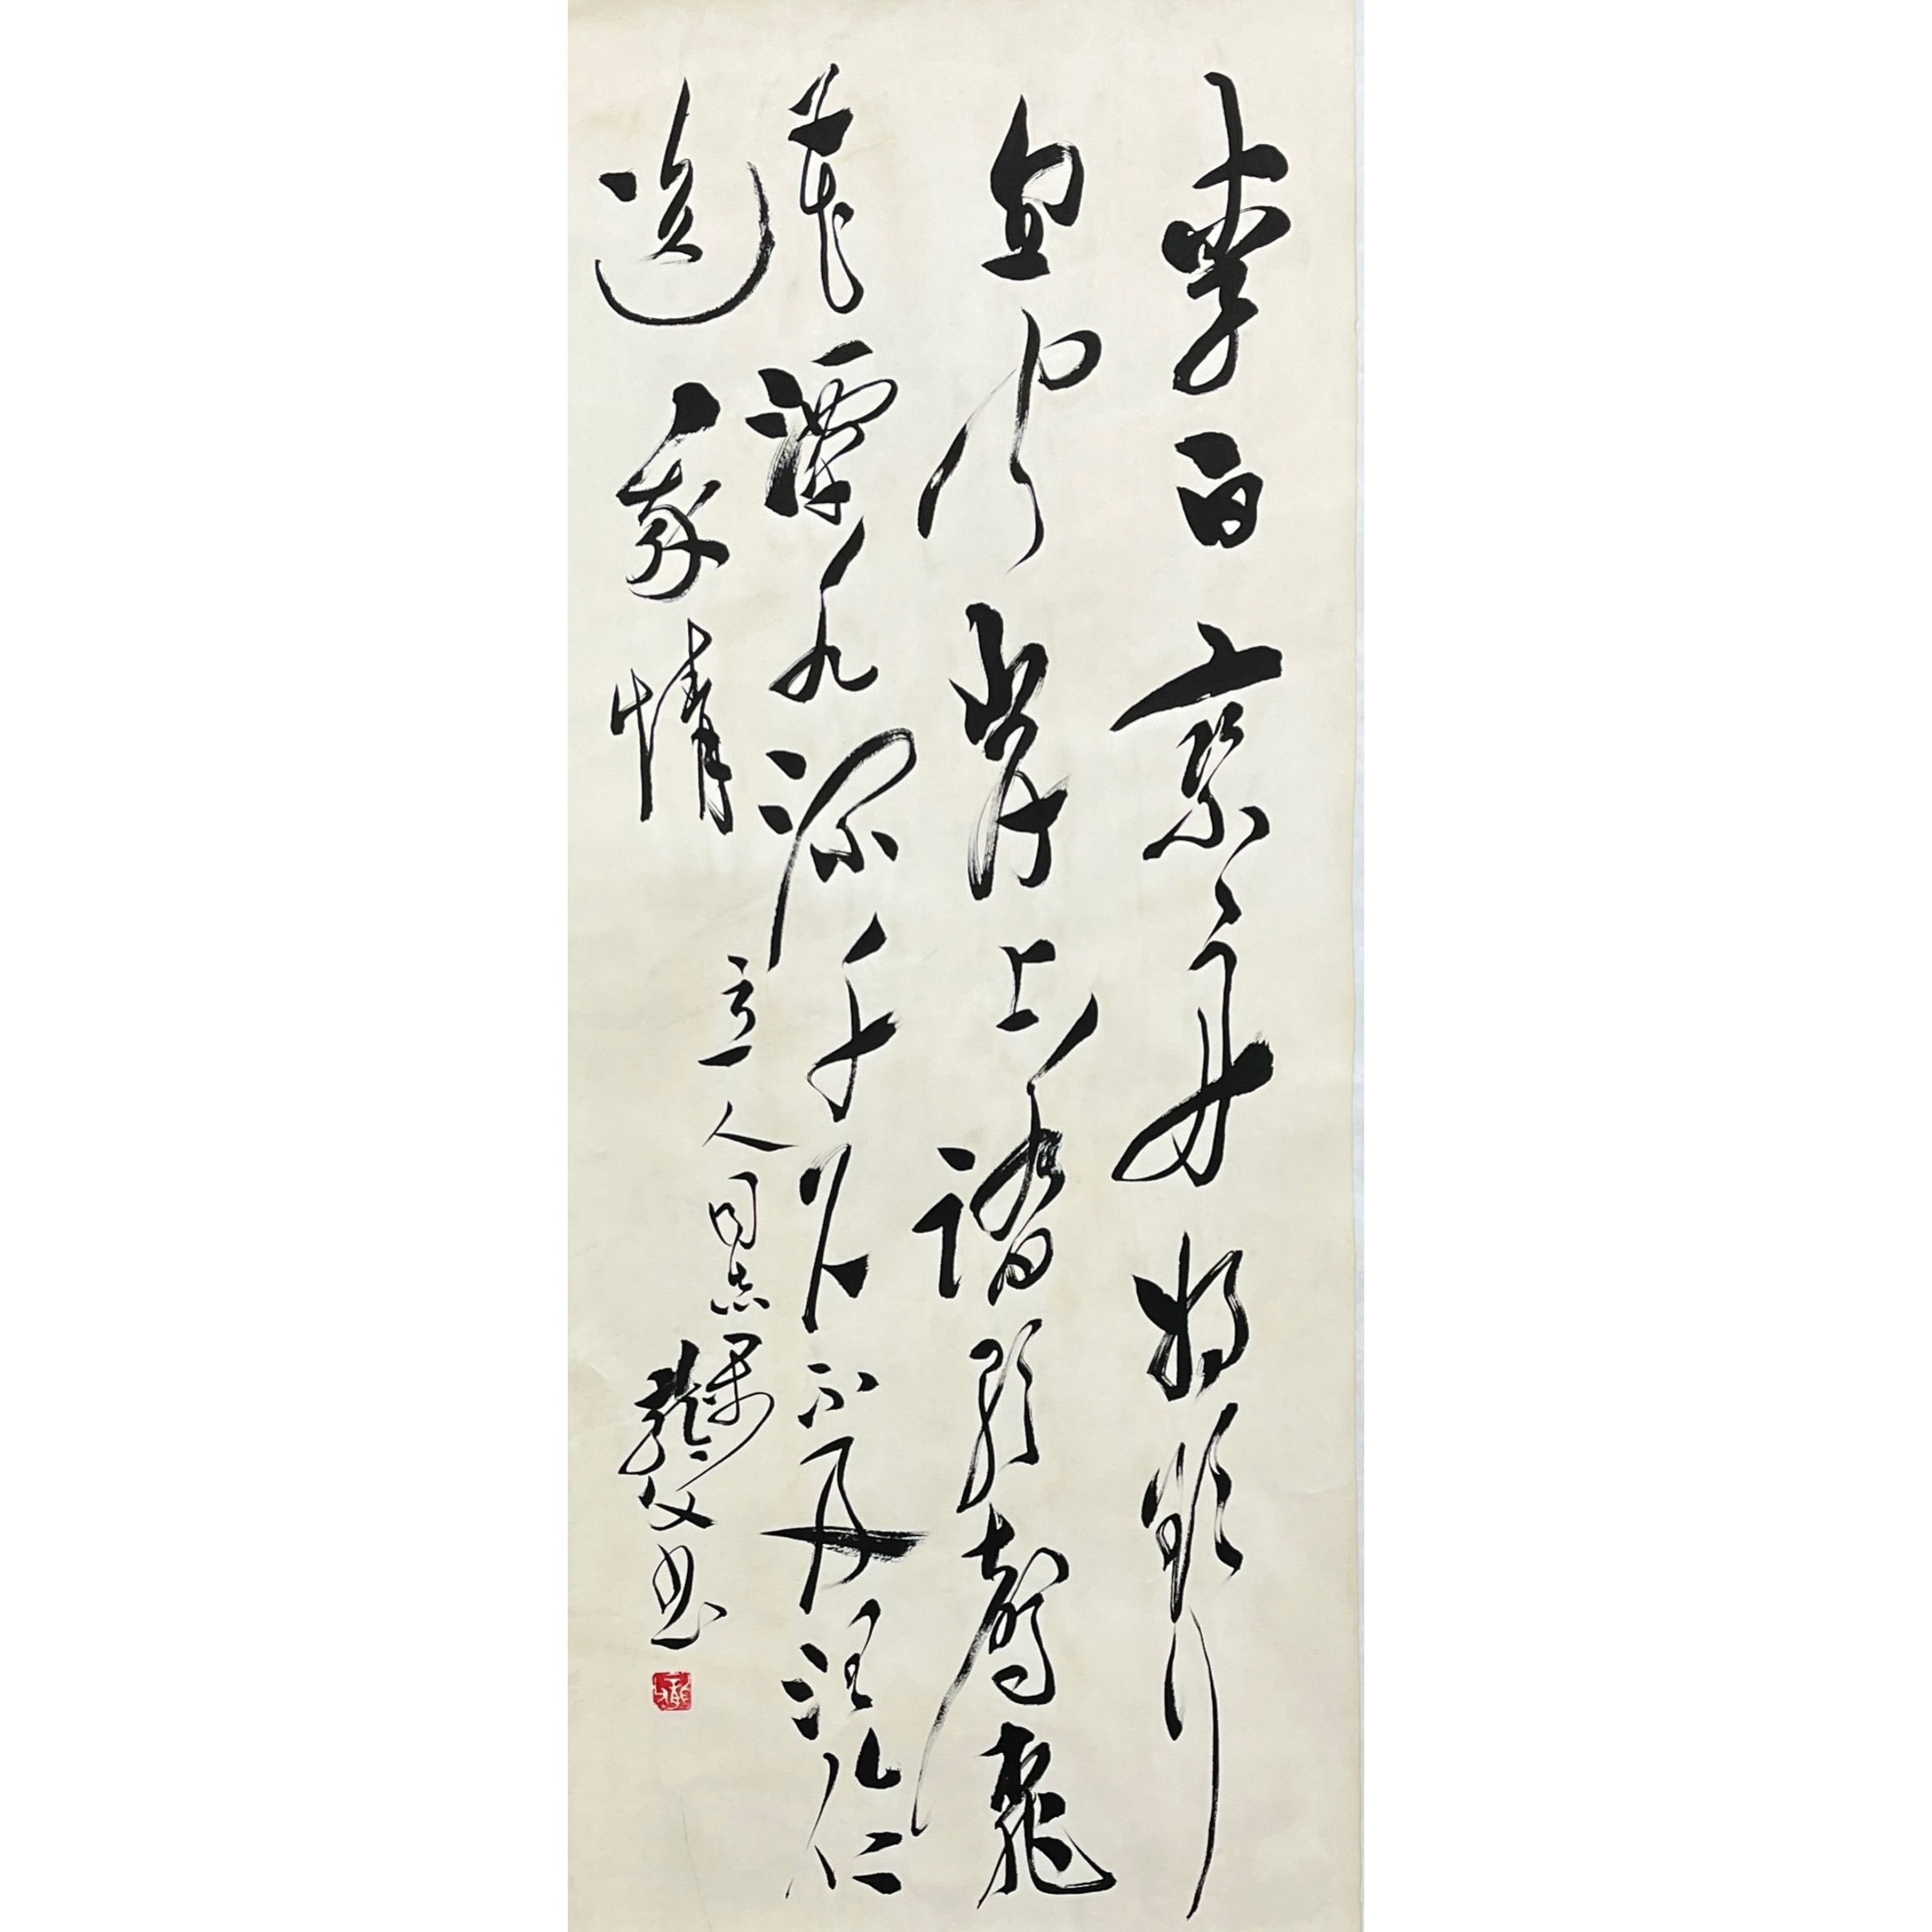 李白乘舟將欲行
忽聞岸上踏歌聲桃
花潭水深千尺不及汪倫
送我情
立人同志属
父书